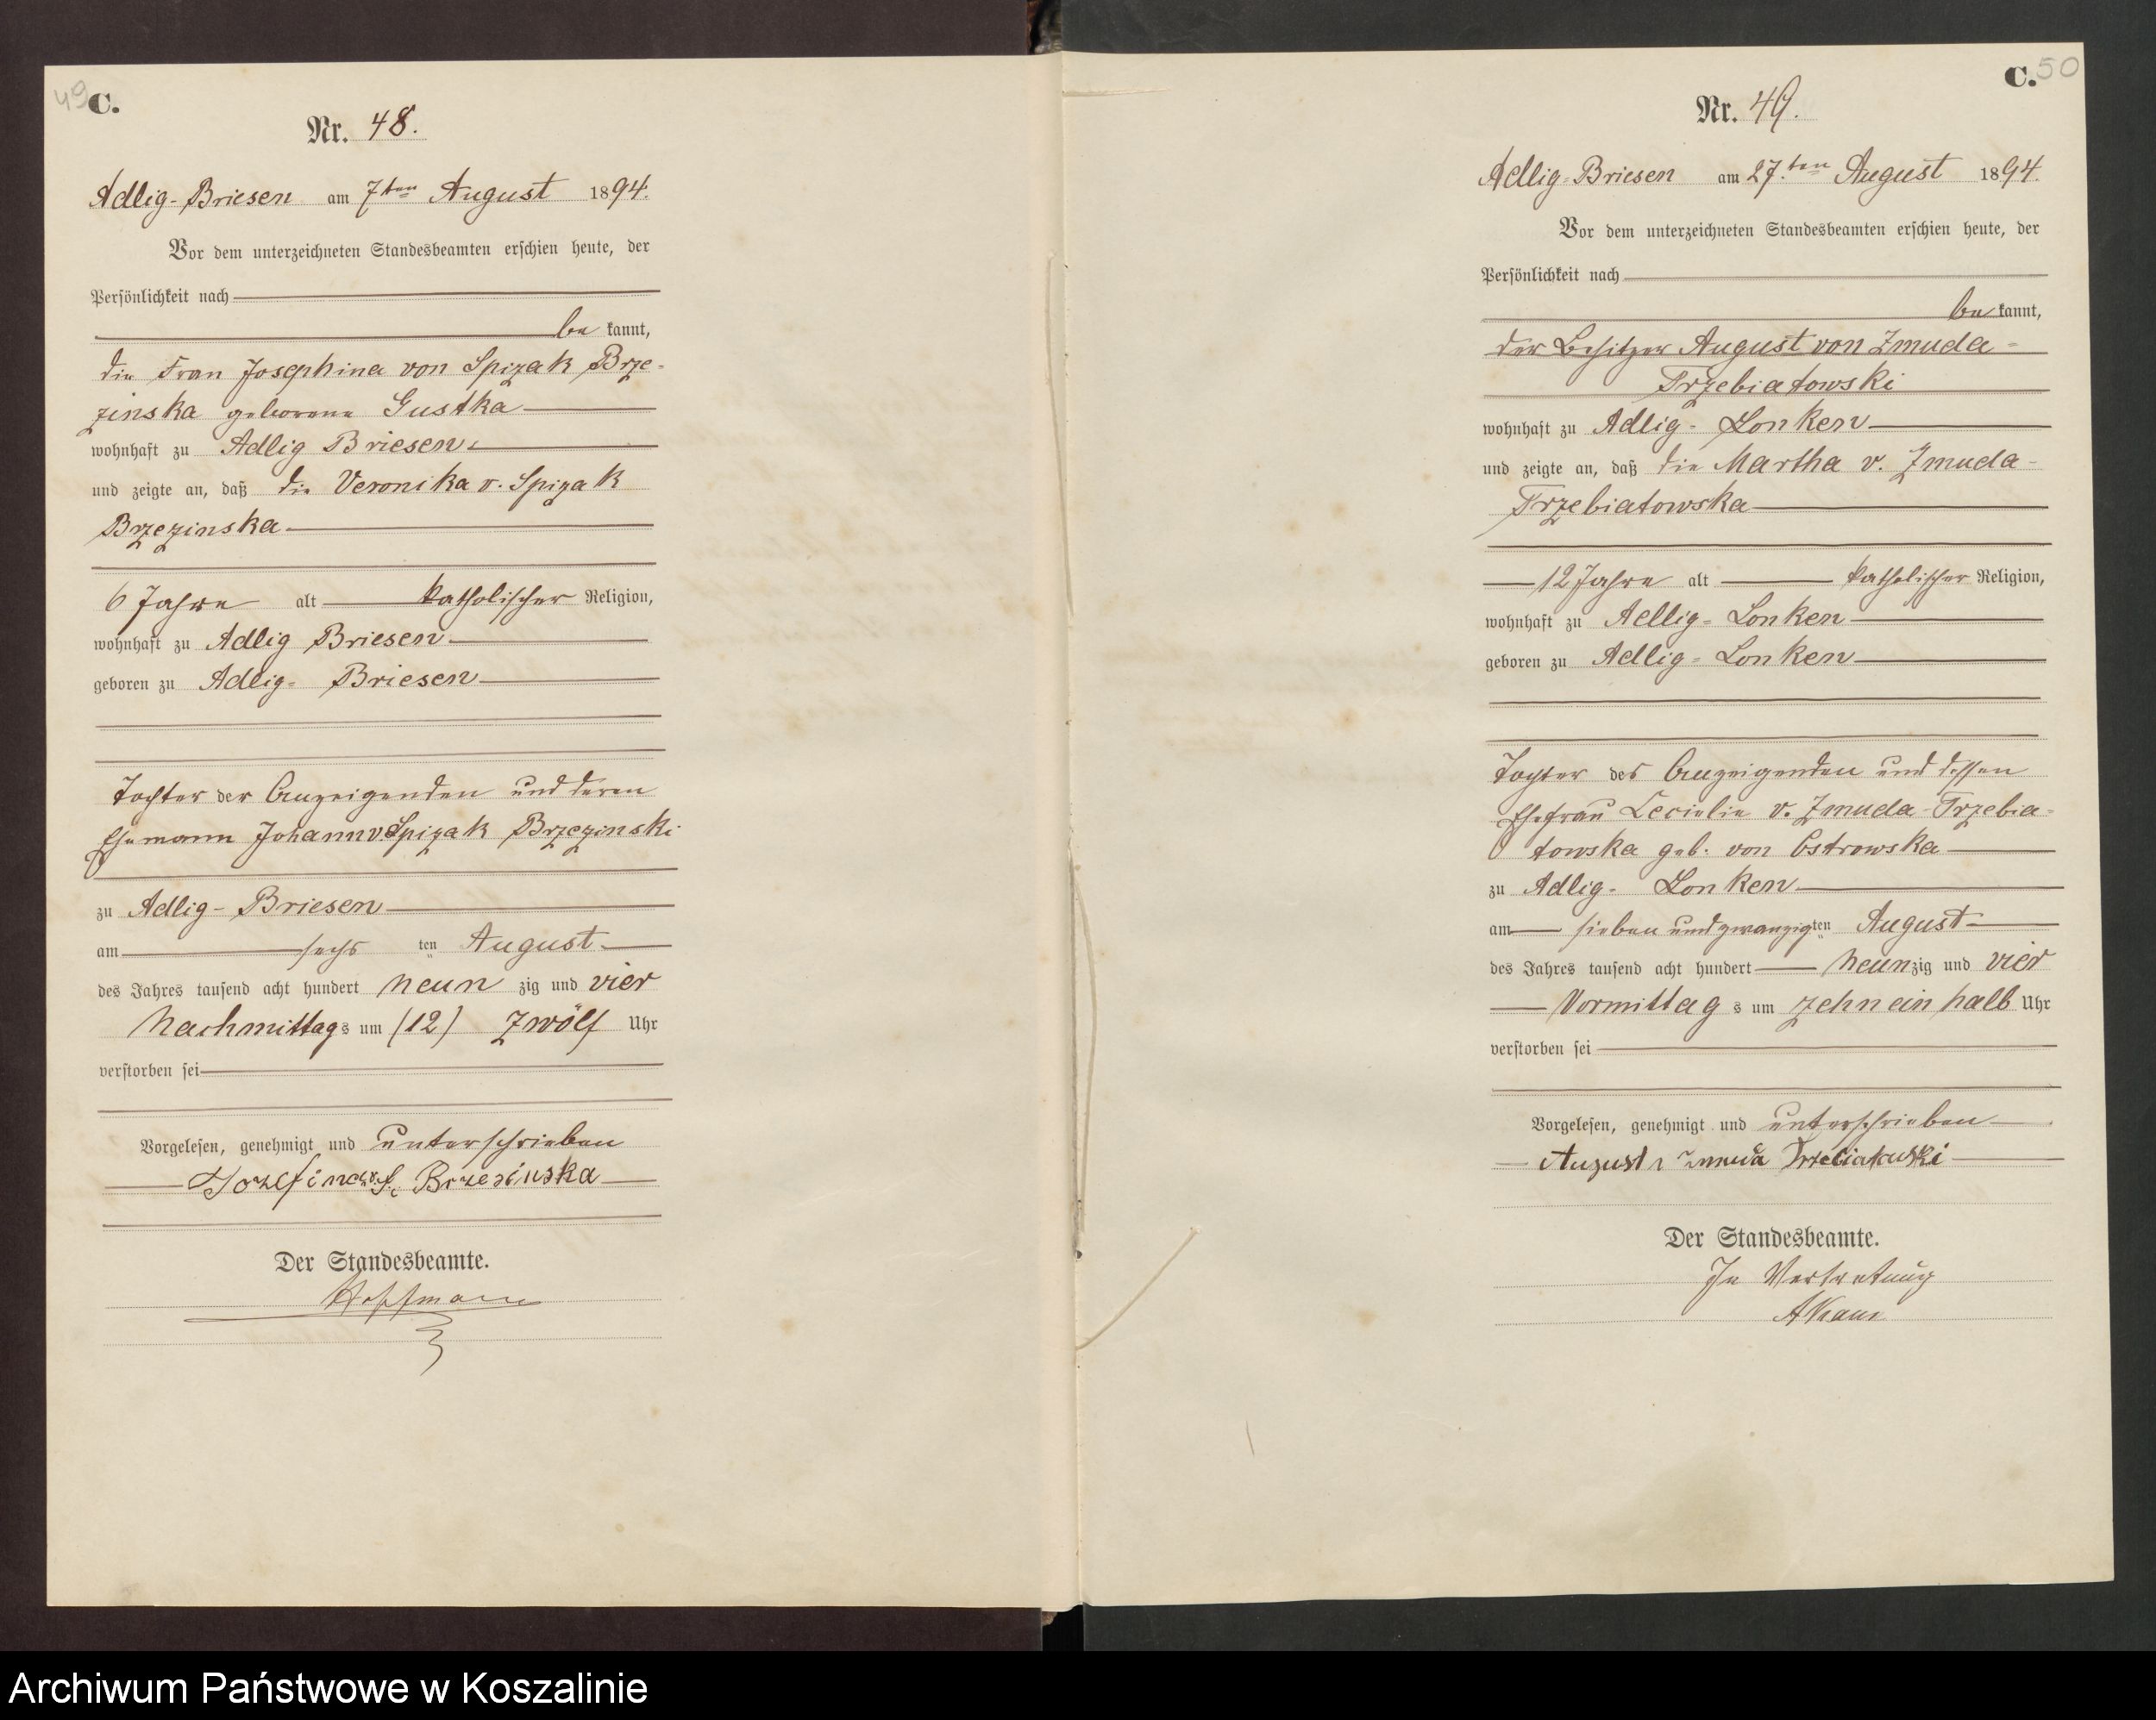 49
C.
Nr. 48.
Adlig-Briesen am 7ten August 1894.
Vor dem unterzeichneten Standesbeamten erschien heute, der
Persönlichkeit nach
be kannt,
die Frau Josephina von Spizak Brze-
zinska geborene Gustka
wohnhaft zu Adlig Briesen,
und zeigte an, daß die Veronika v. Spizak
Brzezinska
6 Jahre alt katholischer Religion,
wohnhaft zu Adlig Briesen
geboren zu Adlig- Briesen
Tochter der Anzeigenden und deren
Ehemann Johann v Spizak Brzezinski
zu Adlig- Briesen
am sechs ten August
des Jahres tausend acht hundert neun zig und vier
Nachmittags um (12) Zwölf Uhr
verstorben sei
Vorgelesen, genehmigt und unterschrieben
Jozefina v. S. Brzezinska
Der Standesbeamte.
Hoffmann
C. 50
Nr. 49.
Adlig-Briesen am 27.ten August 1894.
Vor dem unterzeichneten Standesbeamten erschien heute, der
Persönlichkeit nach
be kannt,
der Besitzer August von Zmuda-
Trzebiatowski
wohnhaft zu Adlig- Lonken
und zeigte an, daß die Martha v. Zmuda-
Trzebiatowska
12 Jahre alt katholischer Religion,
wohnhaft zu Adlig- Lonken
geboren zu Adlig- Lonken
Tochter des Anzeigenden und dessen
Ehefrau Cecielie v. Zmuda-Trzebia-
towska geb. von Ostrowska
zu Adlig- Lonken
am sieben und zwanzigten August
des Jahres tausend acht hundert neunzig und vier
Vormittag s um zehn ein halb Uhr
verstorben sei
Vorgelesen, genehmigt und unterschrieben
August v Zmuda Trzebiatowski
Der Standesbeamte.
In Vertretung
Archiwum Państwowe w Koszalinie